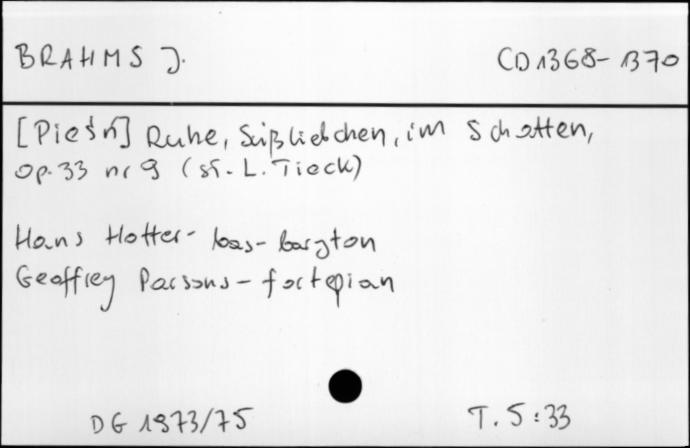 BRAHMS J. CD 1368-1370
[Pieśń] Ruhe, Süßliebchen, im Schatten,
op. 33 nr 9 (sł. L. Tieck)
Hans Hotter - bas-baryton
Geoffrey Parsons - fortepian
DG 1973/75 T. 5:33